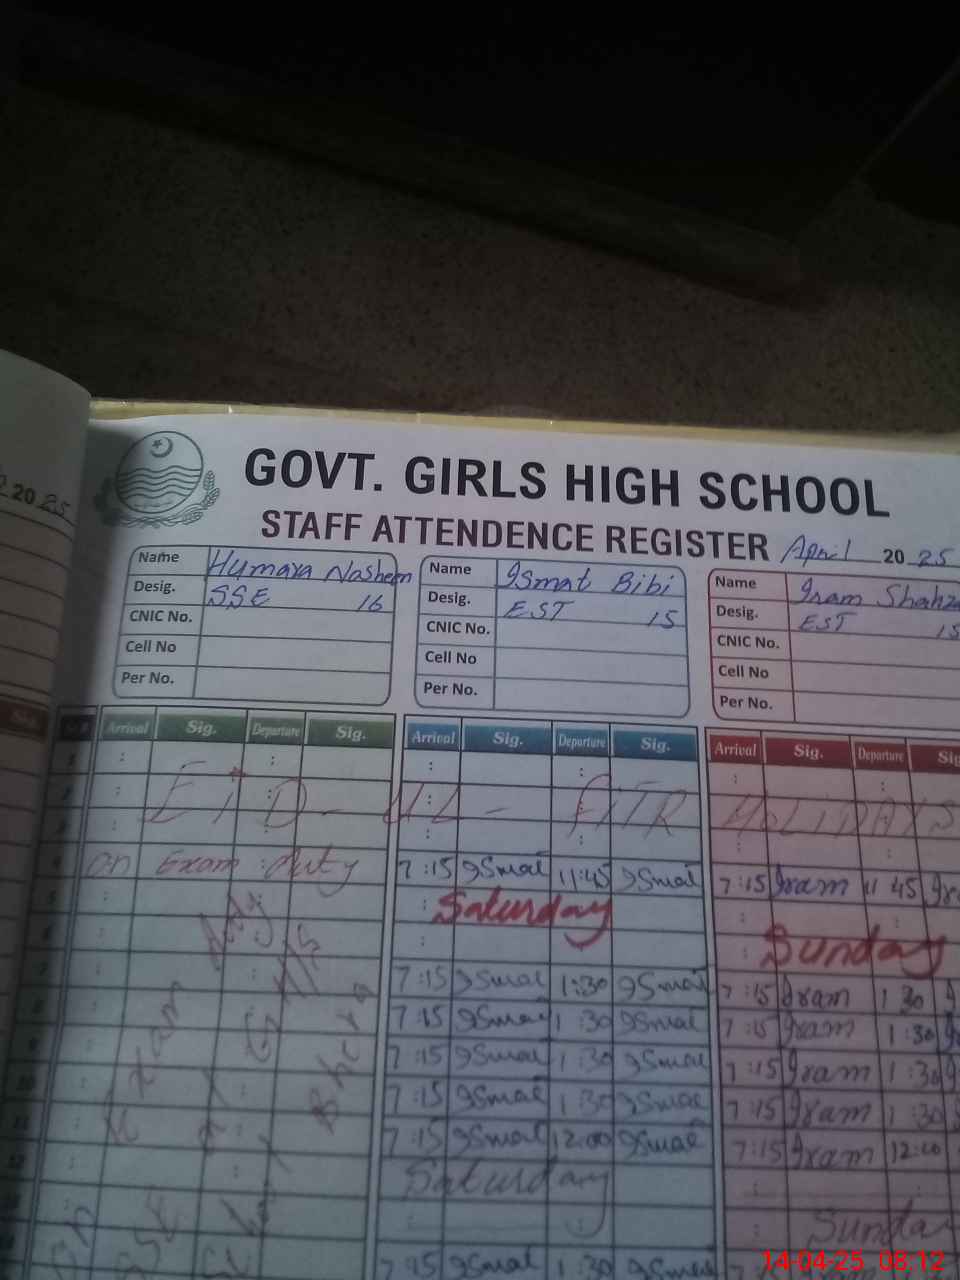 20 25
GOVT. GIRLS HIGH SCHOOL
STAFF ATTENDENCE REGISTER April 20 25
Name Humaya Nasheem
Desig. SSE 16
CNIC No.
Cell No
Per No.
Name Ismat Bibi
Desig. EST 15
CNIC No.
Cell No
Per No.
Name Iram
Desig. EST 15
CNIC No.
Cell No
Per No.
Arrival Sig. Departure Sig. Arrival Sig. Departure Sig. Arrival Sig. Departure
EID-UL-FITR HOLIDAYS
4 on Exam duty 7:15 Ismat 11:45 Ismat 7:15 Iram 11 45
5 Saturday
6 Sunday
7 7:15 Ismat 1:30 Ismat 7:15 Iram 1 30
8 7:15 Ismat 1:30 Ismat 7:15 Iram 1:30
9 7:15 Ismat 1:30 Ismat 7:15 Iram 1:30
10 7:15 Ismat 1:30 Ismat 7:15 Iram 1:30
11 7:15 Ismat 12:00 Ismat 7:15 Iram 12:00
12 Saturday
Sunday
Ismat 1:30 Ismat
Exam
14-04-25 08:12